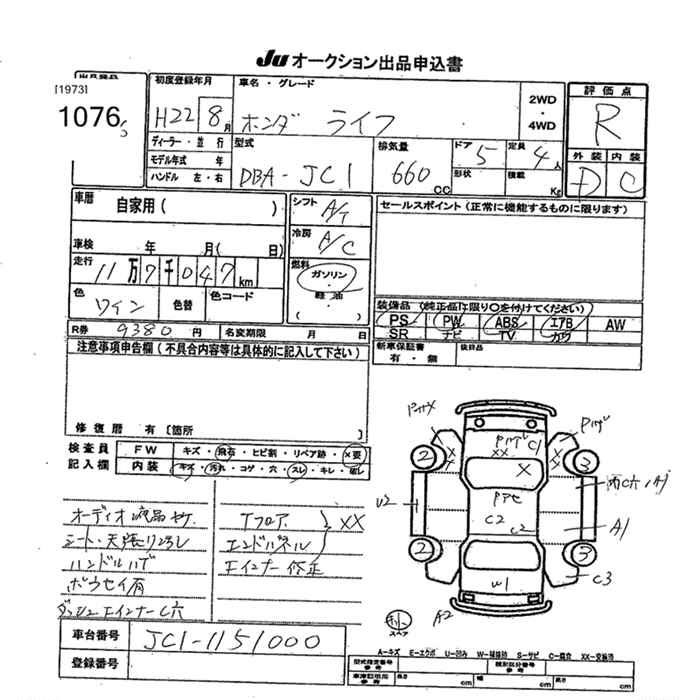 Ju オークション出品申込書
出品番号
[1973]
1076
初度登録年月
H22 8月
車名・グレード
ホンダ ライフ
2WD
・
4WD
評価点
R
外装 内装
D C
ディーラー・並行
モデル年式 年
ハンドル 左・右
型式
DBA-JC1
排気量
660 CC
ドア
5
形状
定員
4人
積載
Kg
車歴
自家用( )
シフト
A/T
セールスポイント(正常に機能するものに限ります)
車検 年 月( 日)
冷房
A/C
走行
11万7千047km
燃料
ガソリン
・
軽油
・
( )
色
ワイン
色替
色コード
装備品(純正品に限り○を付けてください)
PS PW ABS エアB AW
SR ナビ TV カワ
R券 9380円
名変期限 月 日
新車保証書
有・無
後日品
注意事項申告欄(不具合内容等は具体的に記入して下さい)
修復歴 有〔箇所 〕
検査員
記入欄
FW
キズ・飛石・ヒビ割・リペア跡・×要
内装
キズ・汚れ・コゲ・穴・スレ・キレ・破レ
オーディオ液晶ヤケ
シート・天張り汚レ
ハンドルハゲ
ボウセイ有
ダッシュ Fインナー C穴
Tフロア
エンドパネル
XX
Fインナー修正
車台番号
JC1-1151000
登録番号
2
2
3
3
U2
C1
XX
X
C2
C2
W1
A1
C3
A2
スペア
A-キズ E-エクボ U-凹み W-補修跡 S-サビ C-腐食 XX-交換済
型式指定番号
参考
類別区分番号
参考
車体証明用
参考
長さ cm
幅 cm
高さ cm